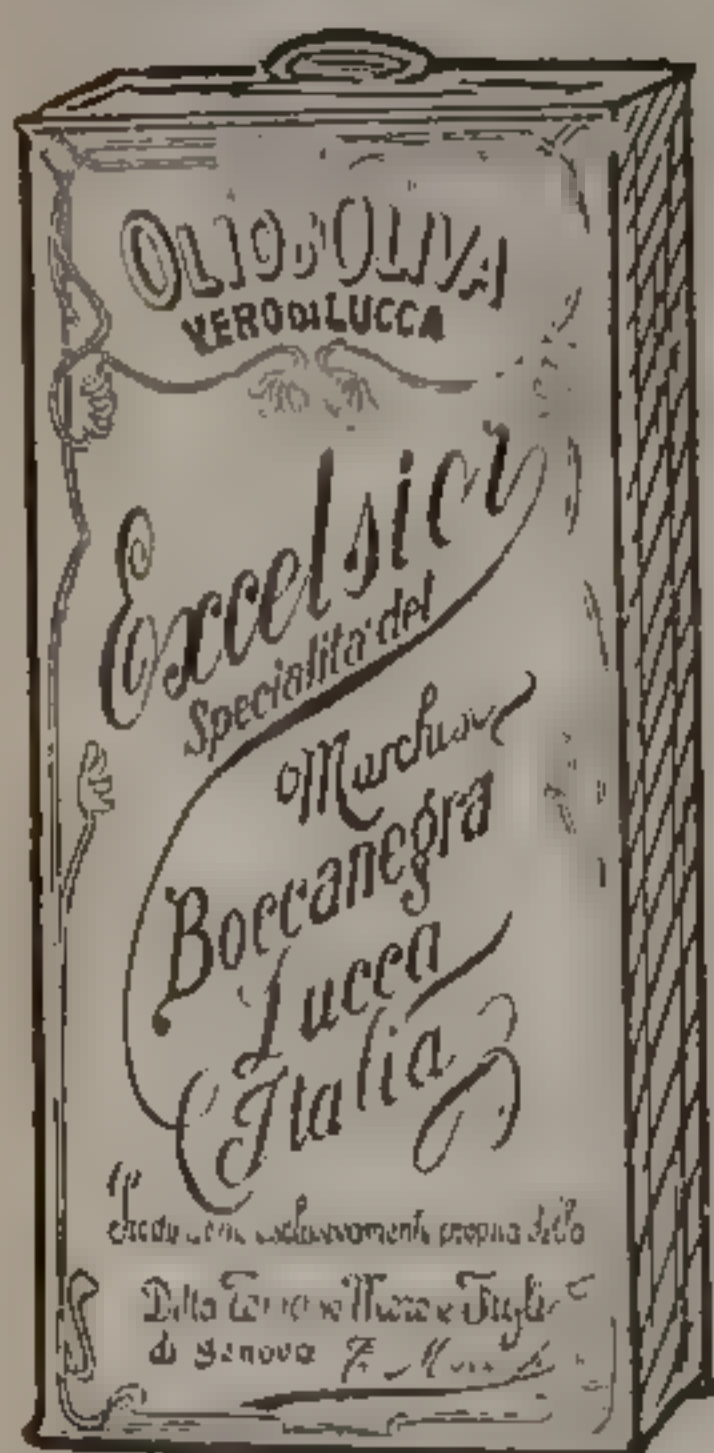 OLIO D'OLIVA
VERO DI LUCCA
Excelsior
Specialita del
Boccanegra
Lucca
Italia
esclusivamente propria della
Ditta e Figli
di Genova